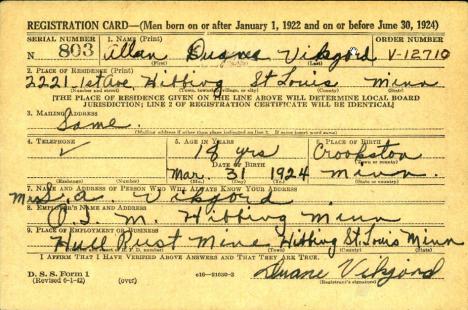 REGISTRATION CARD—(Men born on or after January 1, 1922 and on or before June 30, 1924)
SERIAL NUMBER 1. NAME (Print) ORDER NUMBER
N 803 Allan Duane Vikjord V-12710
(First) (Last)
2. PLACE OF RESIDENCE (Print)
2221-1st Ave Hibbing St Louis Minn
(Number and street) (Town, township, village, or city) (County) (State)
[THE PLACE OF RESIDENCE GIVEN ON THE LINE ABOVE WILL DETERMINE LOCAL BOARD
JURISDICTION; LINE 2 OF REGISTRATION CERTIFICATE WILL BE IDENTICAL]
3. MAILING ADDRESS
Same.
[Mailing address if other than place indicated on line 2. If same insert word same]
4. TELEPHONE 5. AGE IN YEARS PLACE OF BIRTH
✓ 18 yrs Crookston
DATE OF BIRTH (Town or county)
Mar. 31 1924 Minn.
(State or country)
7. NAME AND ADDRESS OF PERSON WHO WILL ALWAYS KNOW YOUR ADDRESS
Mrs Vikjord
8. EMPLOYER'S NAME AND ADDRESS
O. I. M. Hibbing Minn
9. PLACE OF EMPLOYMENT OR BUSINESS
Hull Rust Mine Hibbing St. Louis Minn
(County) (State)
I AFFIRM THAT I HAVE VERIFIED ABOVE ANSWERS AND THAT THEY ARE TRUE.
D. S. S. Form 1 (over) Duane Vikjord
(Revised 6-1-42) (Registrant's signature)